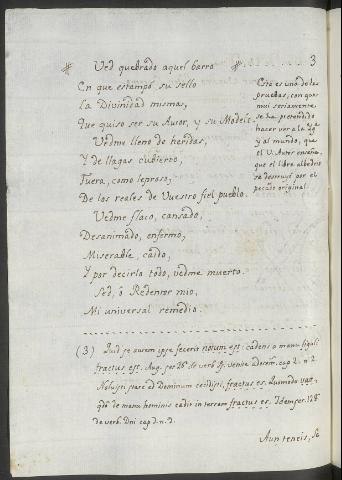 3
# Ved quebrado aquel barro #
En que estampó su sello
La Divinidad misma,
Que quiso ser su Autor, y su Modelo.
Vedme lleno de heridas,
Y de llagas cubierto,
Fuera, como leproso,
De los reales de Vuestro fiel pueblo.
Vedme flaco, cansado,
Desanimado, enfermo,
Miserable, caido,
Y por decirlo todo, vedme muerto.
Sed, ó Redentor mio,
Mi universal remedio.
Este es uno de las
pruebas, con que
mui seriamente
se ha pretendido
hacer ver al
y al mundo, que
el V. Autor enseña
que el libre albedrio
se destruyó por el
pecado original.
(3) Quid se autem ipse fecerit notum est: cadens a manu figuli
fractus est. Aug. ser 26 de verb cap 2. n. 2.
Noluisti stare ad Dominum cecidisti, fractus es. Quomodo vas,
qdo de manu hominis cadit in terram fractus es. Idem ser. 128
de verb. Dni cap n.
Aun teneis, Se